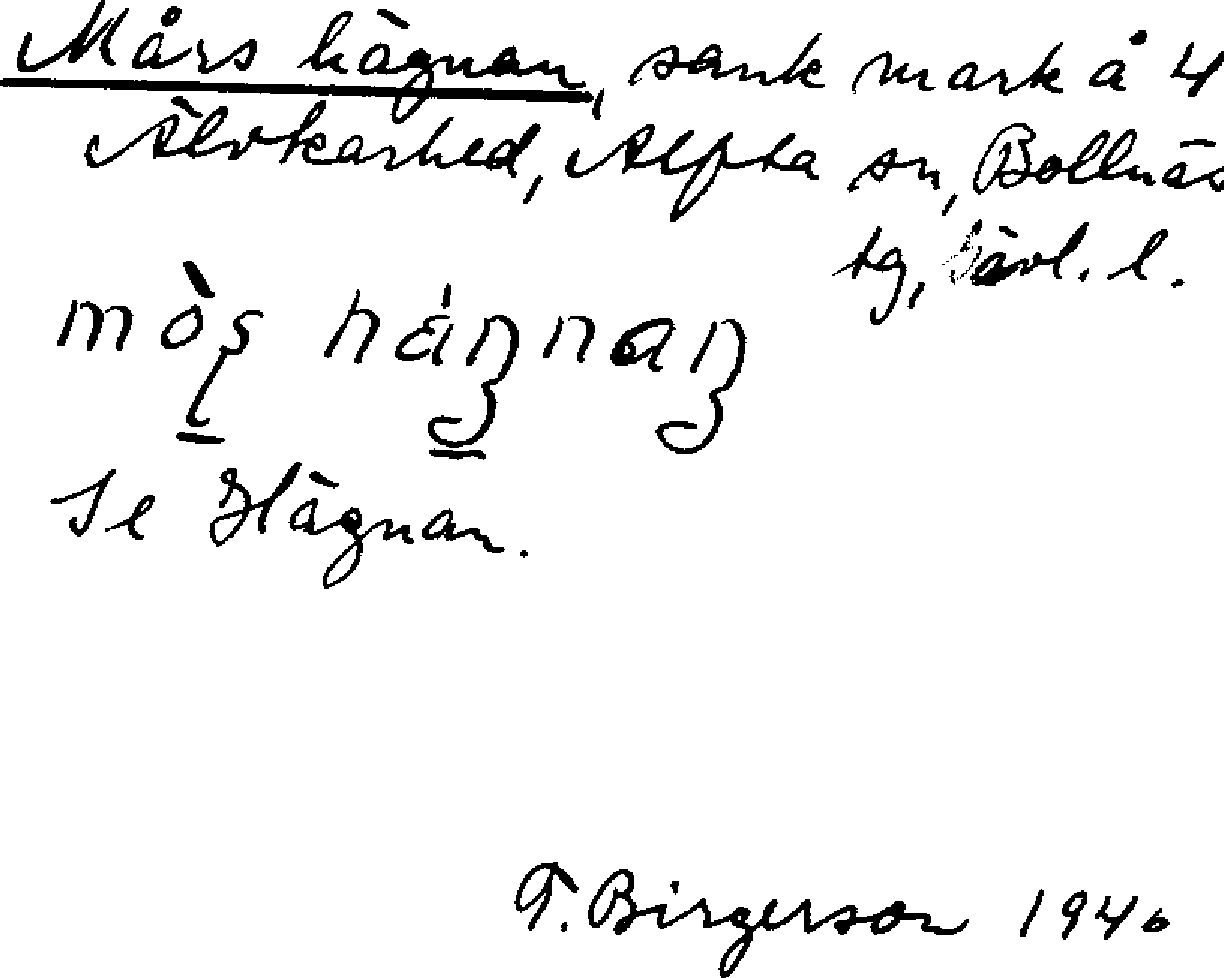 Mårs hägnan, sank mark å 4
Älvkarhed, Alfta sn, Bollnäs
tg, Gävl. l.
Se Hägnan.
T. Birgerson 1940